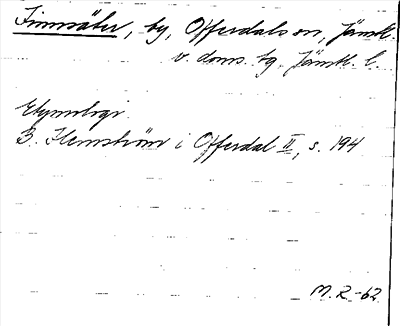 Finnsäter, by, Offerdals sn, Jämtl.
v. doms. bg, Jämtl. l.
Etymologi
B. Flemström i Offerdal II, s. 194
M. R. -62